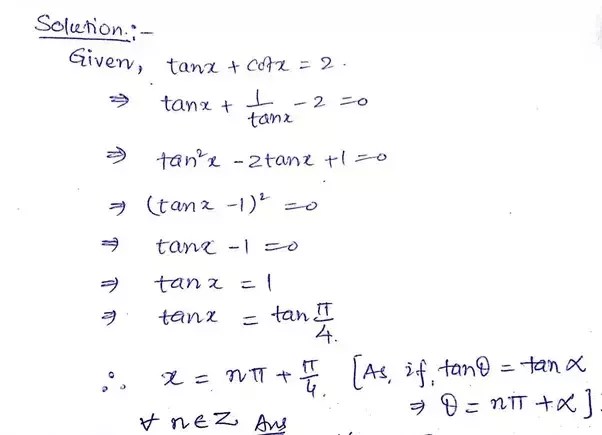 Solution:-
Given, tanx + cotx = 2.
⇒ tanx + 1/tanx - 2 = 0
⇒ tan²x - 2tanx + 1 = 0
⇒ (tanx - 1)² = 0
⇒ tanx - 1 = 0
⇒ tanx = 1
⇒ tanx = tan π/4.
∴ x = nπ + π/4. [As, if, tanθ = tanα
∀ n∈Z Ans ⇒ θ = nπ + α].